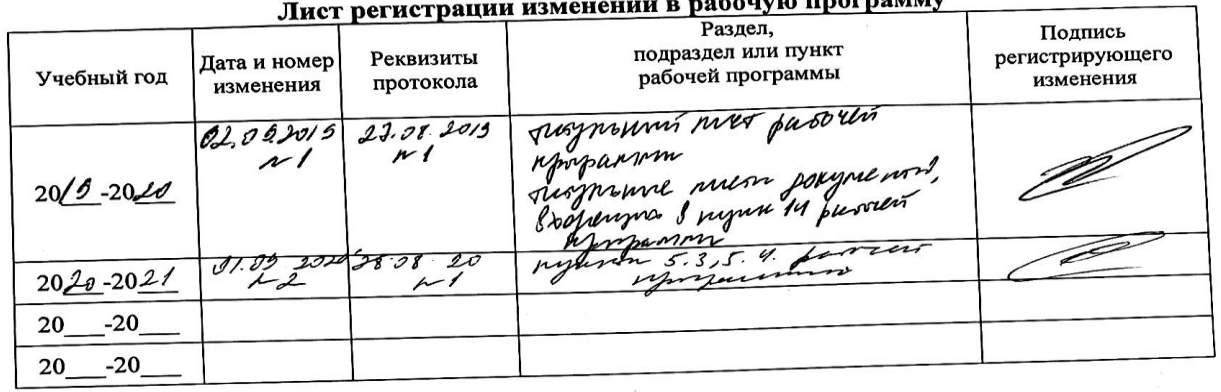 Лист регистрации изменений в рабочую программу
Учебный год
Дата и номер
изменения
Реквизиты
протокола
Раздел,
подраздел или пункт
рабочей программы
Подпись
регистрирующего
изменения
2019-2020
02.09.2019
№1
27.08.2019
№1
титульный лист рабочей
программы
титульные листы документов,
входящих в пункт 14 рабочей
программы
2020-2021
01.09 2020
№2
28.08.20
№1
пункты 5.3, 5.4. рабочей
программы
20___-20___
20___-20___